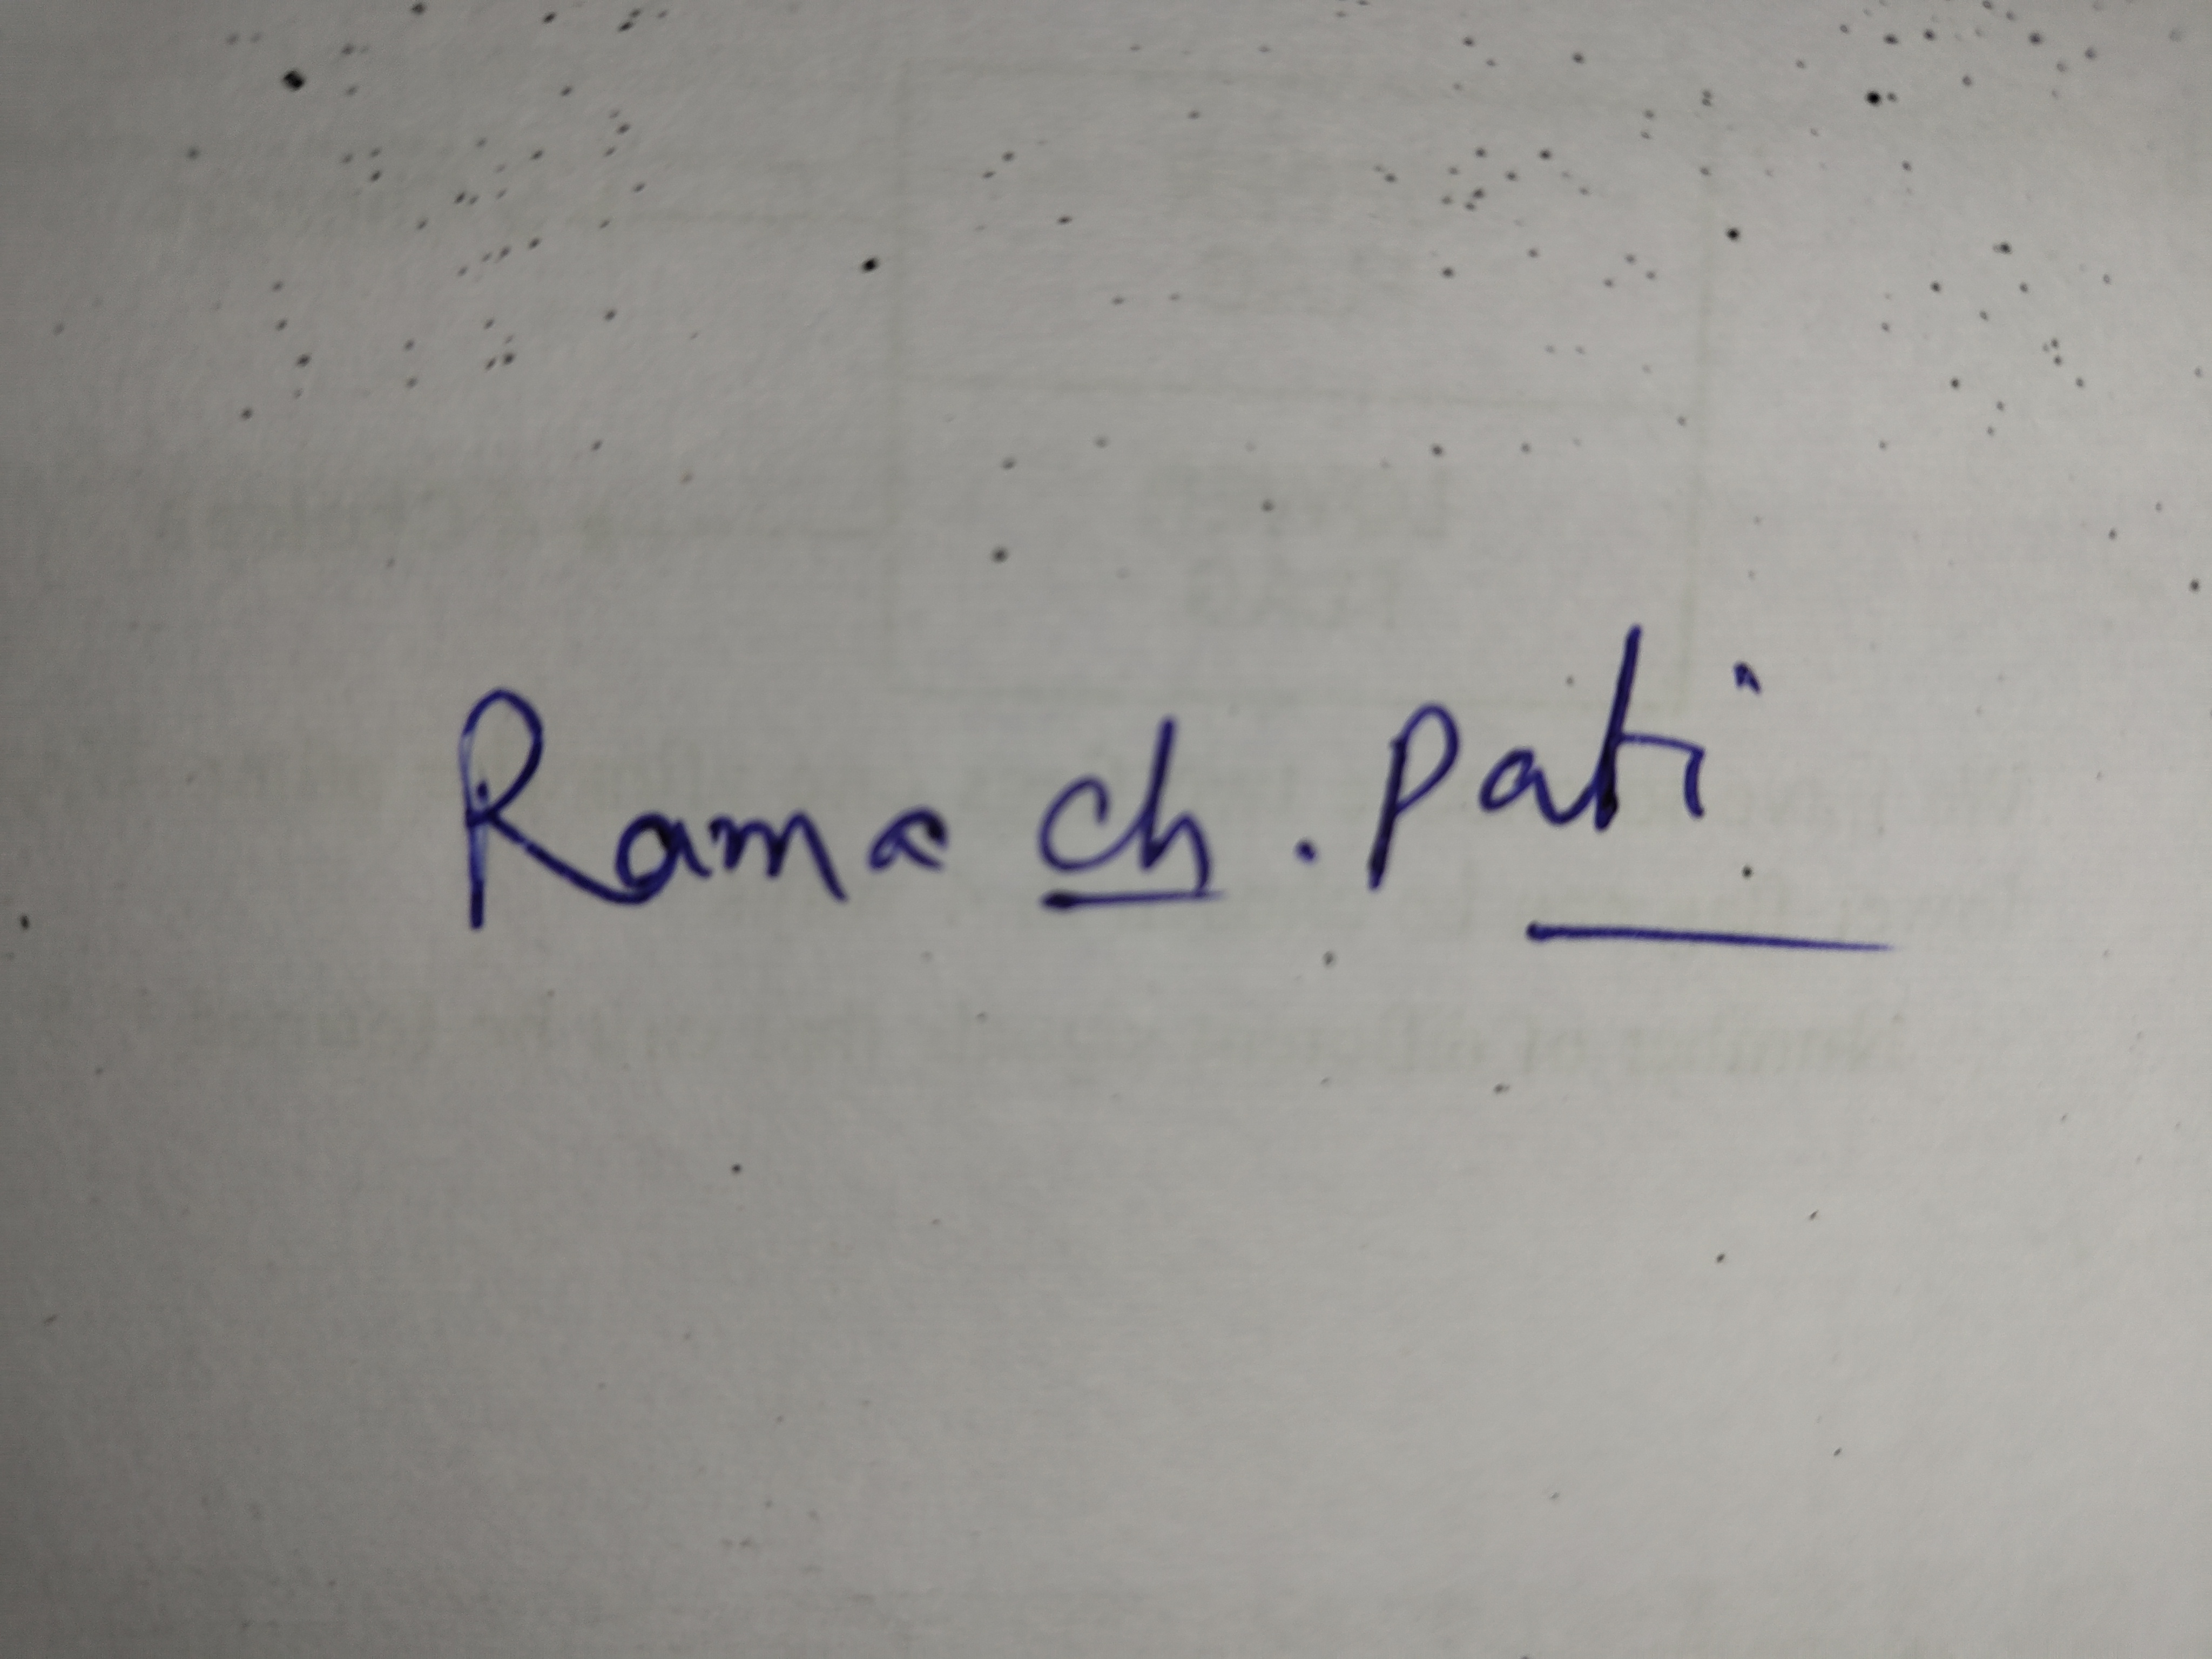 Rama ch. Pati